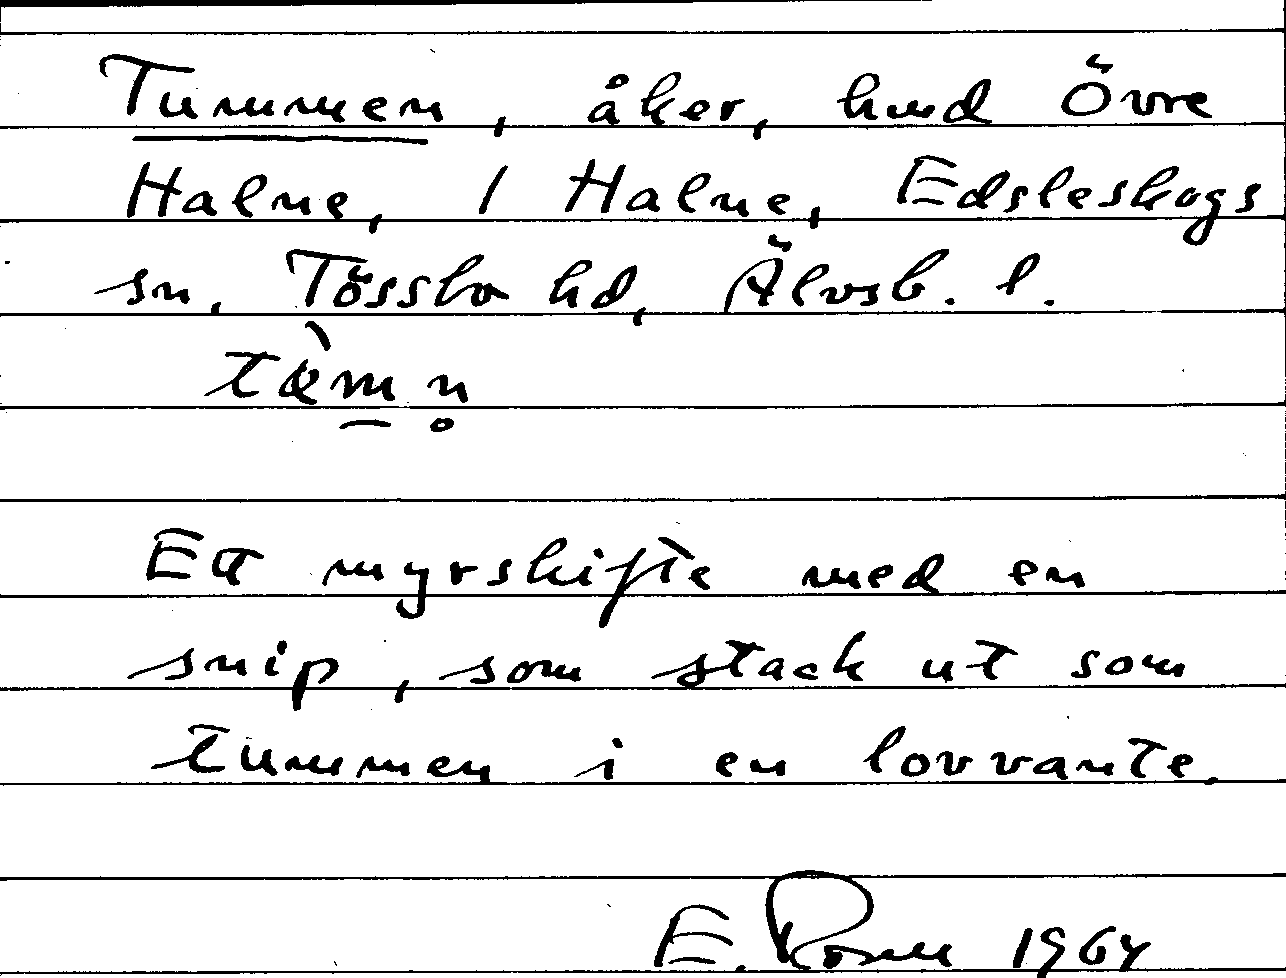 Tummen, åker, hmd Övre
Halne, 1 Halne, Edsleskogs
sn, Tössbo hd, Älvsb. l.
tæ̀m̲n̥
Ett myrskifte med en
snip, som stack ut som
tummen i en lovvante.
E. 1964